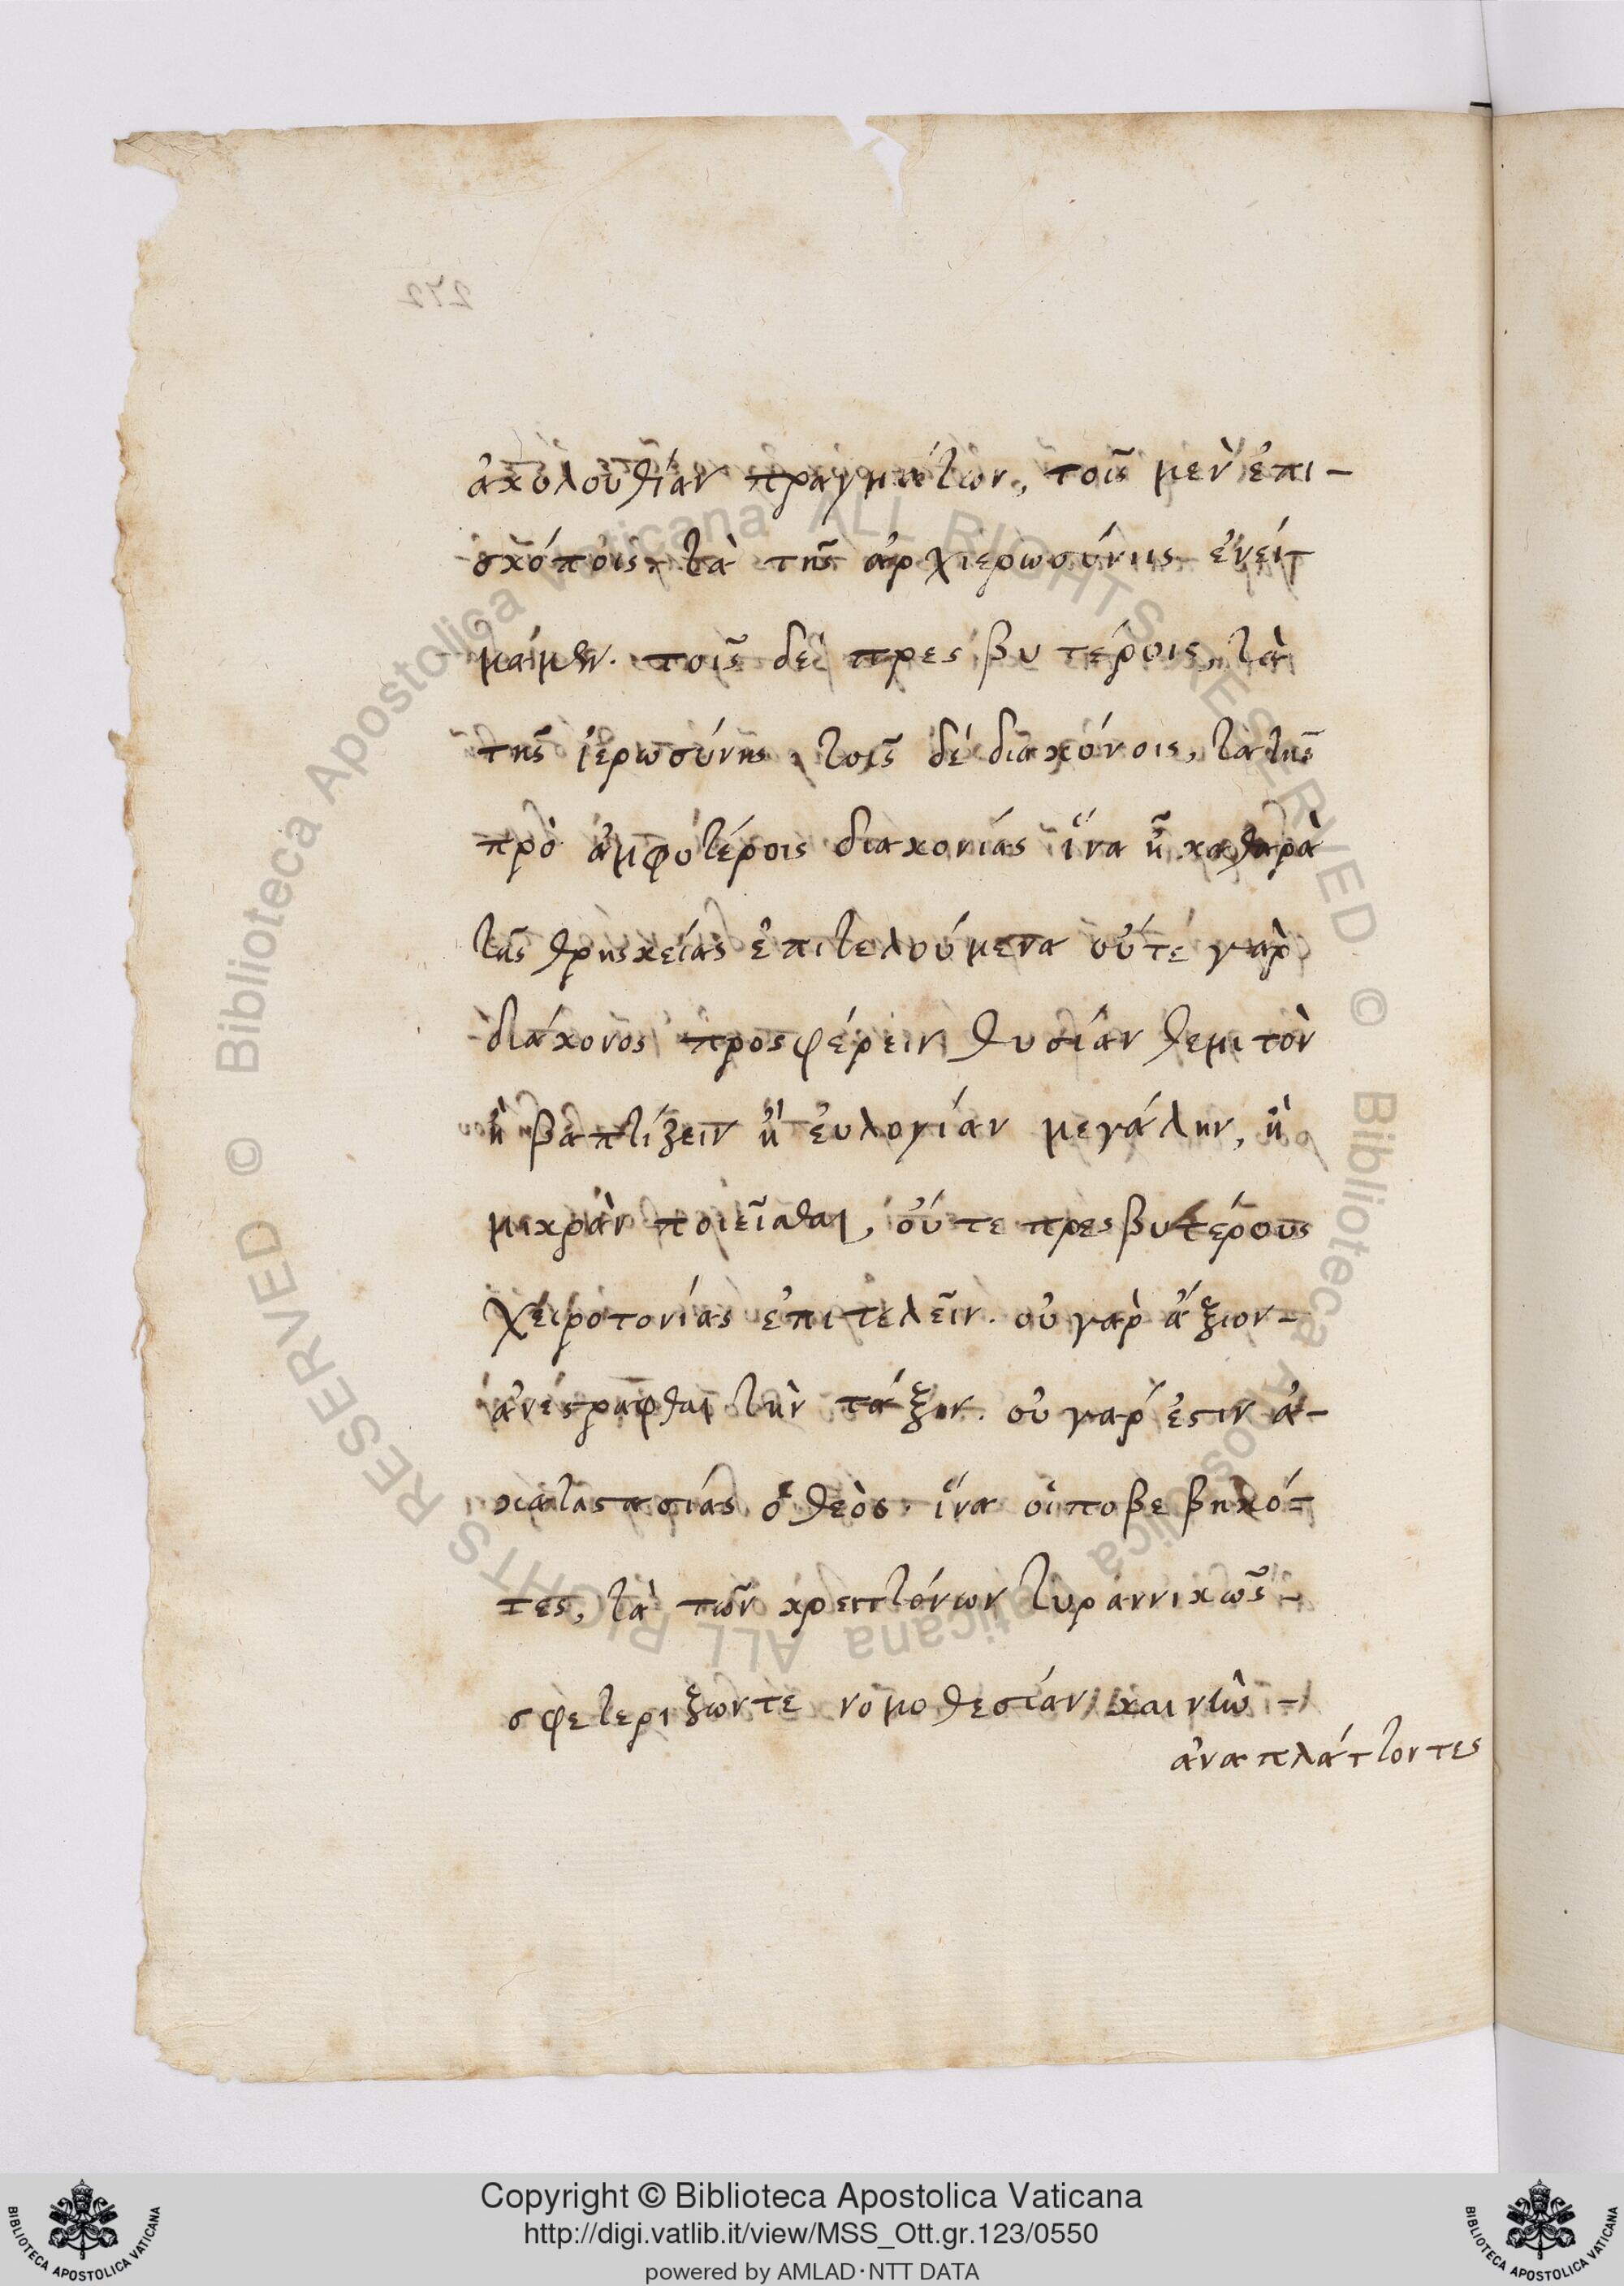 ἀκολουθίαν πραγμάτων, τοῖς μὲν ἐπι-
σκόποις τὰ τῆς ἀρχιερωσύνης ἐνεί
μάμεν. τοῖς δὲ πρεσβυτέροις, τὰ
τῆς ἱερωσύνης, τοῖς δὲ διακόνοις, τὰ τῆς
πρὸ ἀμφοτέροις διακονίας ἵνα ἦ καθαρὰ
τᾶς θρησκείας ἐπιτελούμενα οὔτε γαρ
διάκονος προσφέρειν θυσίαν θεμιτὸν
ἢ βαπτίζειν ἢ ἐυλογίαν μεγάλην, ἢ
μικρὰν ποιεῖσθαι, οὔτε πρεσβυτέρους
χειροτονίας ἐπιτελεῖν. οὐ γαρ ἄξιον-
ἀνεστράφθαι τὴν τάξιν. οὐ γαρ ἐστιν ἀ-
καταστασίας ὁ θεὸς. ἵνα οἱ ποβεβηκό-
τες, τὰ τῶν κρειττόνων τυραννικῶς-
σφετεριξωντε νομοθεσίαν καινὴν -
ἀναπλάττοντες
272
Copyright © Biblioteca Apostolica Vaticana
http://digi.vatlib.it/view/MSS_Ott.gr.123/0550
powered by AMLAD·NTT DATA
© Biblioteca Apostolica Vaticana ALL RIGHTS RESERVED
© Biblioteca Apostolica Vaticana ALL RIGHTS RESERVED
BIBLIOTECA APOSTOLICA VATICANA
BIBLIOTECA APOSTOLICA VATICANA